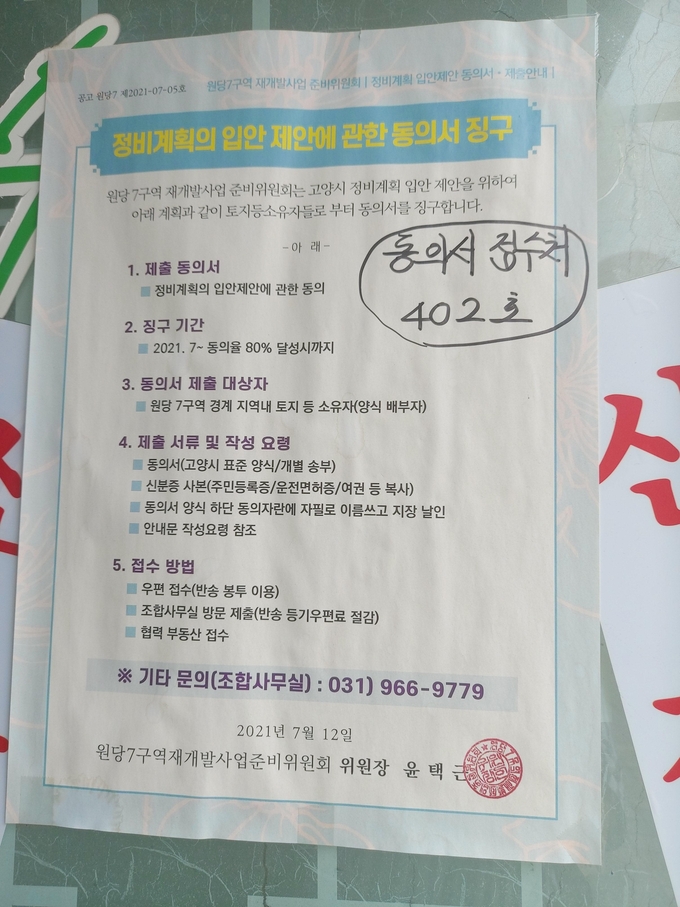 공고 원당7 제2021-07-05호
원당7구역 재개발사업 준비위원회 | 정비계획 입안제안 동의서 · 제출안내 |
정비계획의 입안 제안에 관한 동의서 징구
원당 7구역 재개발사업 준비위원회는 고양시 정비계획 입안 제안을 위하여
아래 계획과 같이 토지등소유자들로 부터 동의서를 징구합니다.
-아 래-
동의서 접수처
402호
1. 제출 동의서
정비계획의 입안제안에 관한 동의
2. 징구 기간
2021. 7~ 동의율 80% 달성시까지
3. 동의서 제출 대상자
원당 7구역 경계 지역내 토지 등 소유자(양식 배부자)
4. 제출 서류 및 작성 요령
동의서(고양시 표준 양식/개별 송부)
신분증 사본(주민등록증/운전면허증/여권 등 복사)
동의서 양식 하단 동의자란에 자필로 이름쓰고 지장 날인
안내문 작성요령 참조
5. 접수 방법
우편 접수(반송 봉투 이용)
조합사무실 방문 제출(반송 등기우편료 절감)
협력 부동산 접수
※ 기타 문의(조합사무실) : 031) 966-9779
2021년 7월 12일
원당7구역재개발사업준비위원회 위원장 윤 택 근